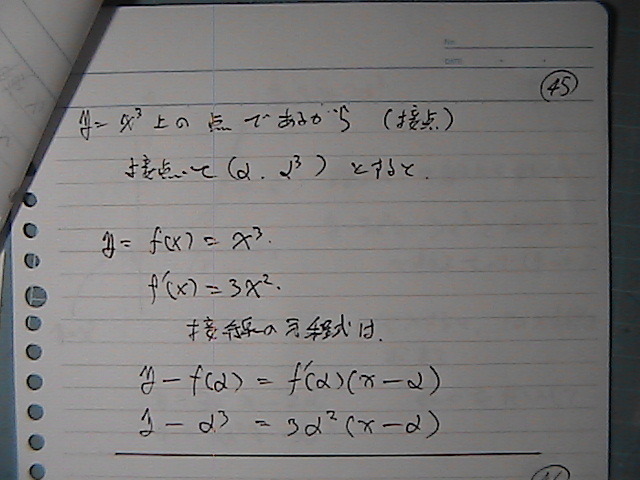 No.
DATE
45
y = x³ 上の点であるから (接点)
接点を (α, α³) とすると.
y = f(x) = x³.
f'(x) = 3x².
接線の方程式は.
y - f(α) = f'(α)(x - α)
y - α³ = 3α²(x - α)